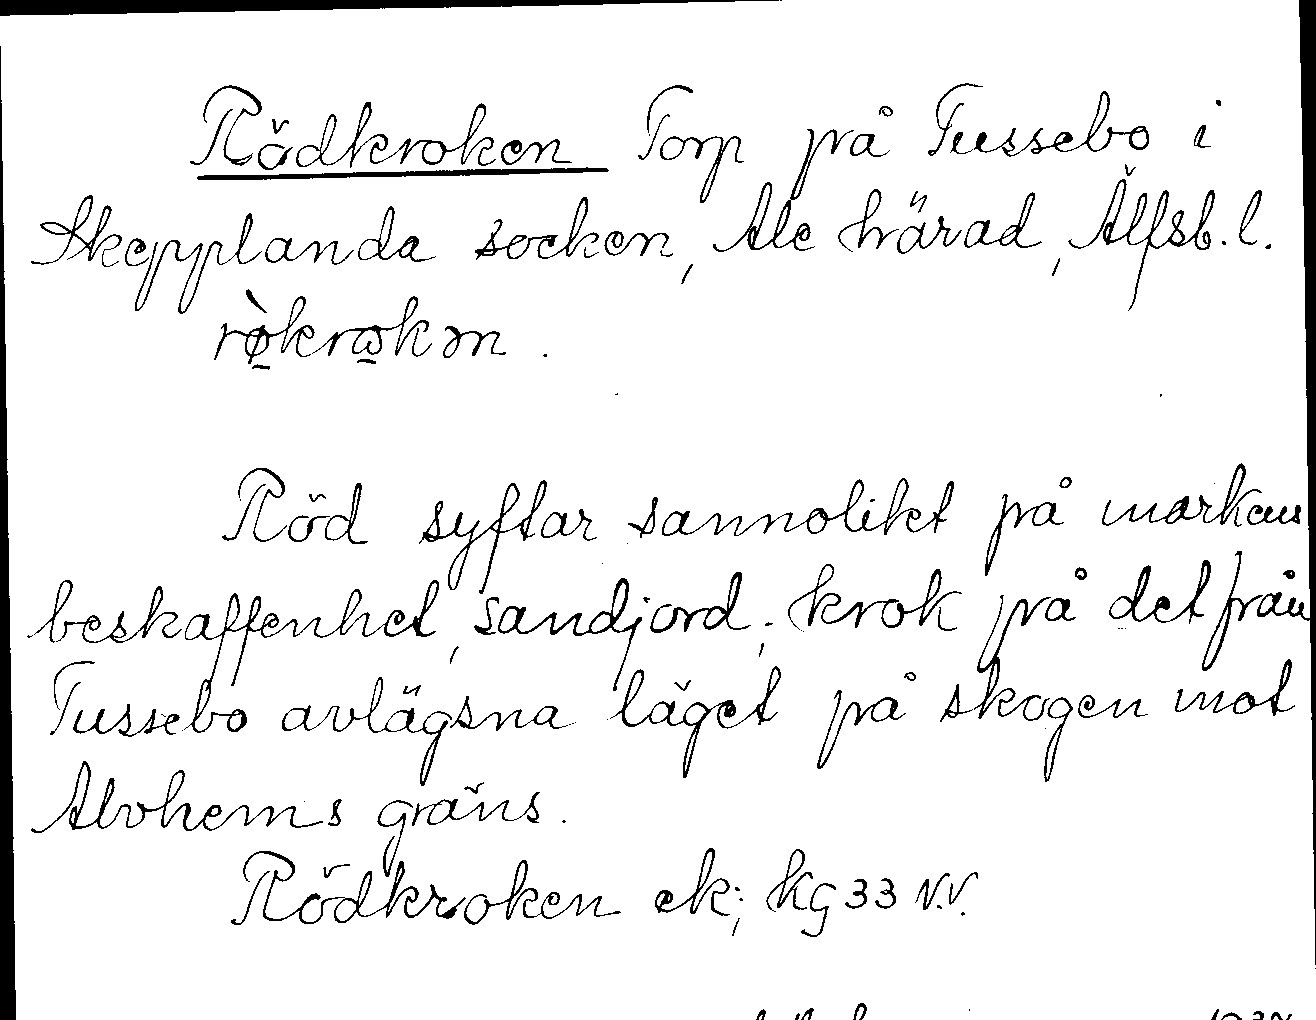 Rödkroken Torp på Tussebo i
Skepplanda socken, Ale härad, Älfsb. l.
rø̀krωkən.
Röd syftar sannolikt på markens
beskaffenhet, sandjord; krok på det från
Tussebo avlägsna läget på skogen mot
Alvhems gräns.
Rödkroken ek; KG 33 N.V.